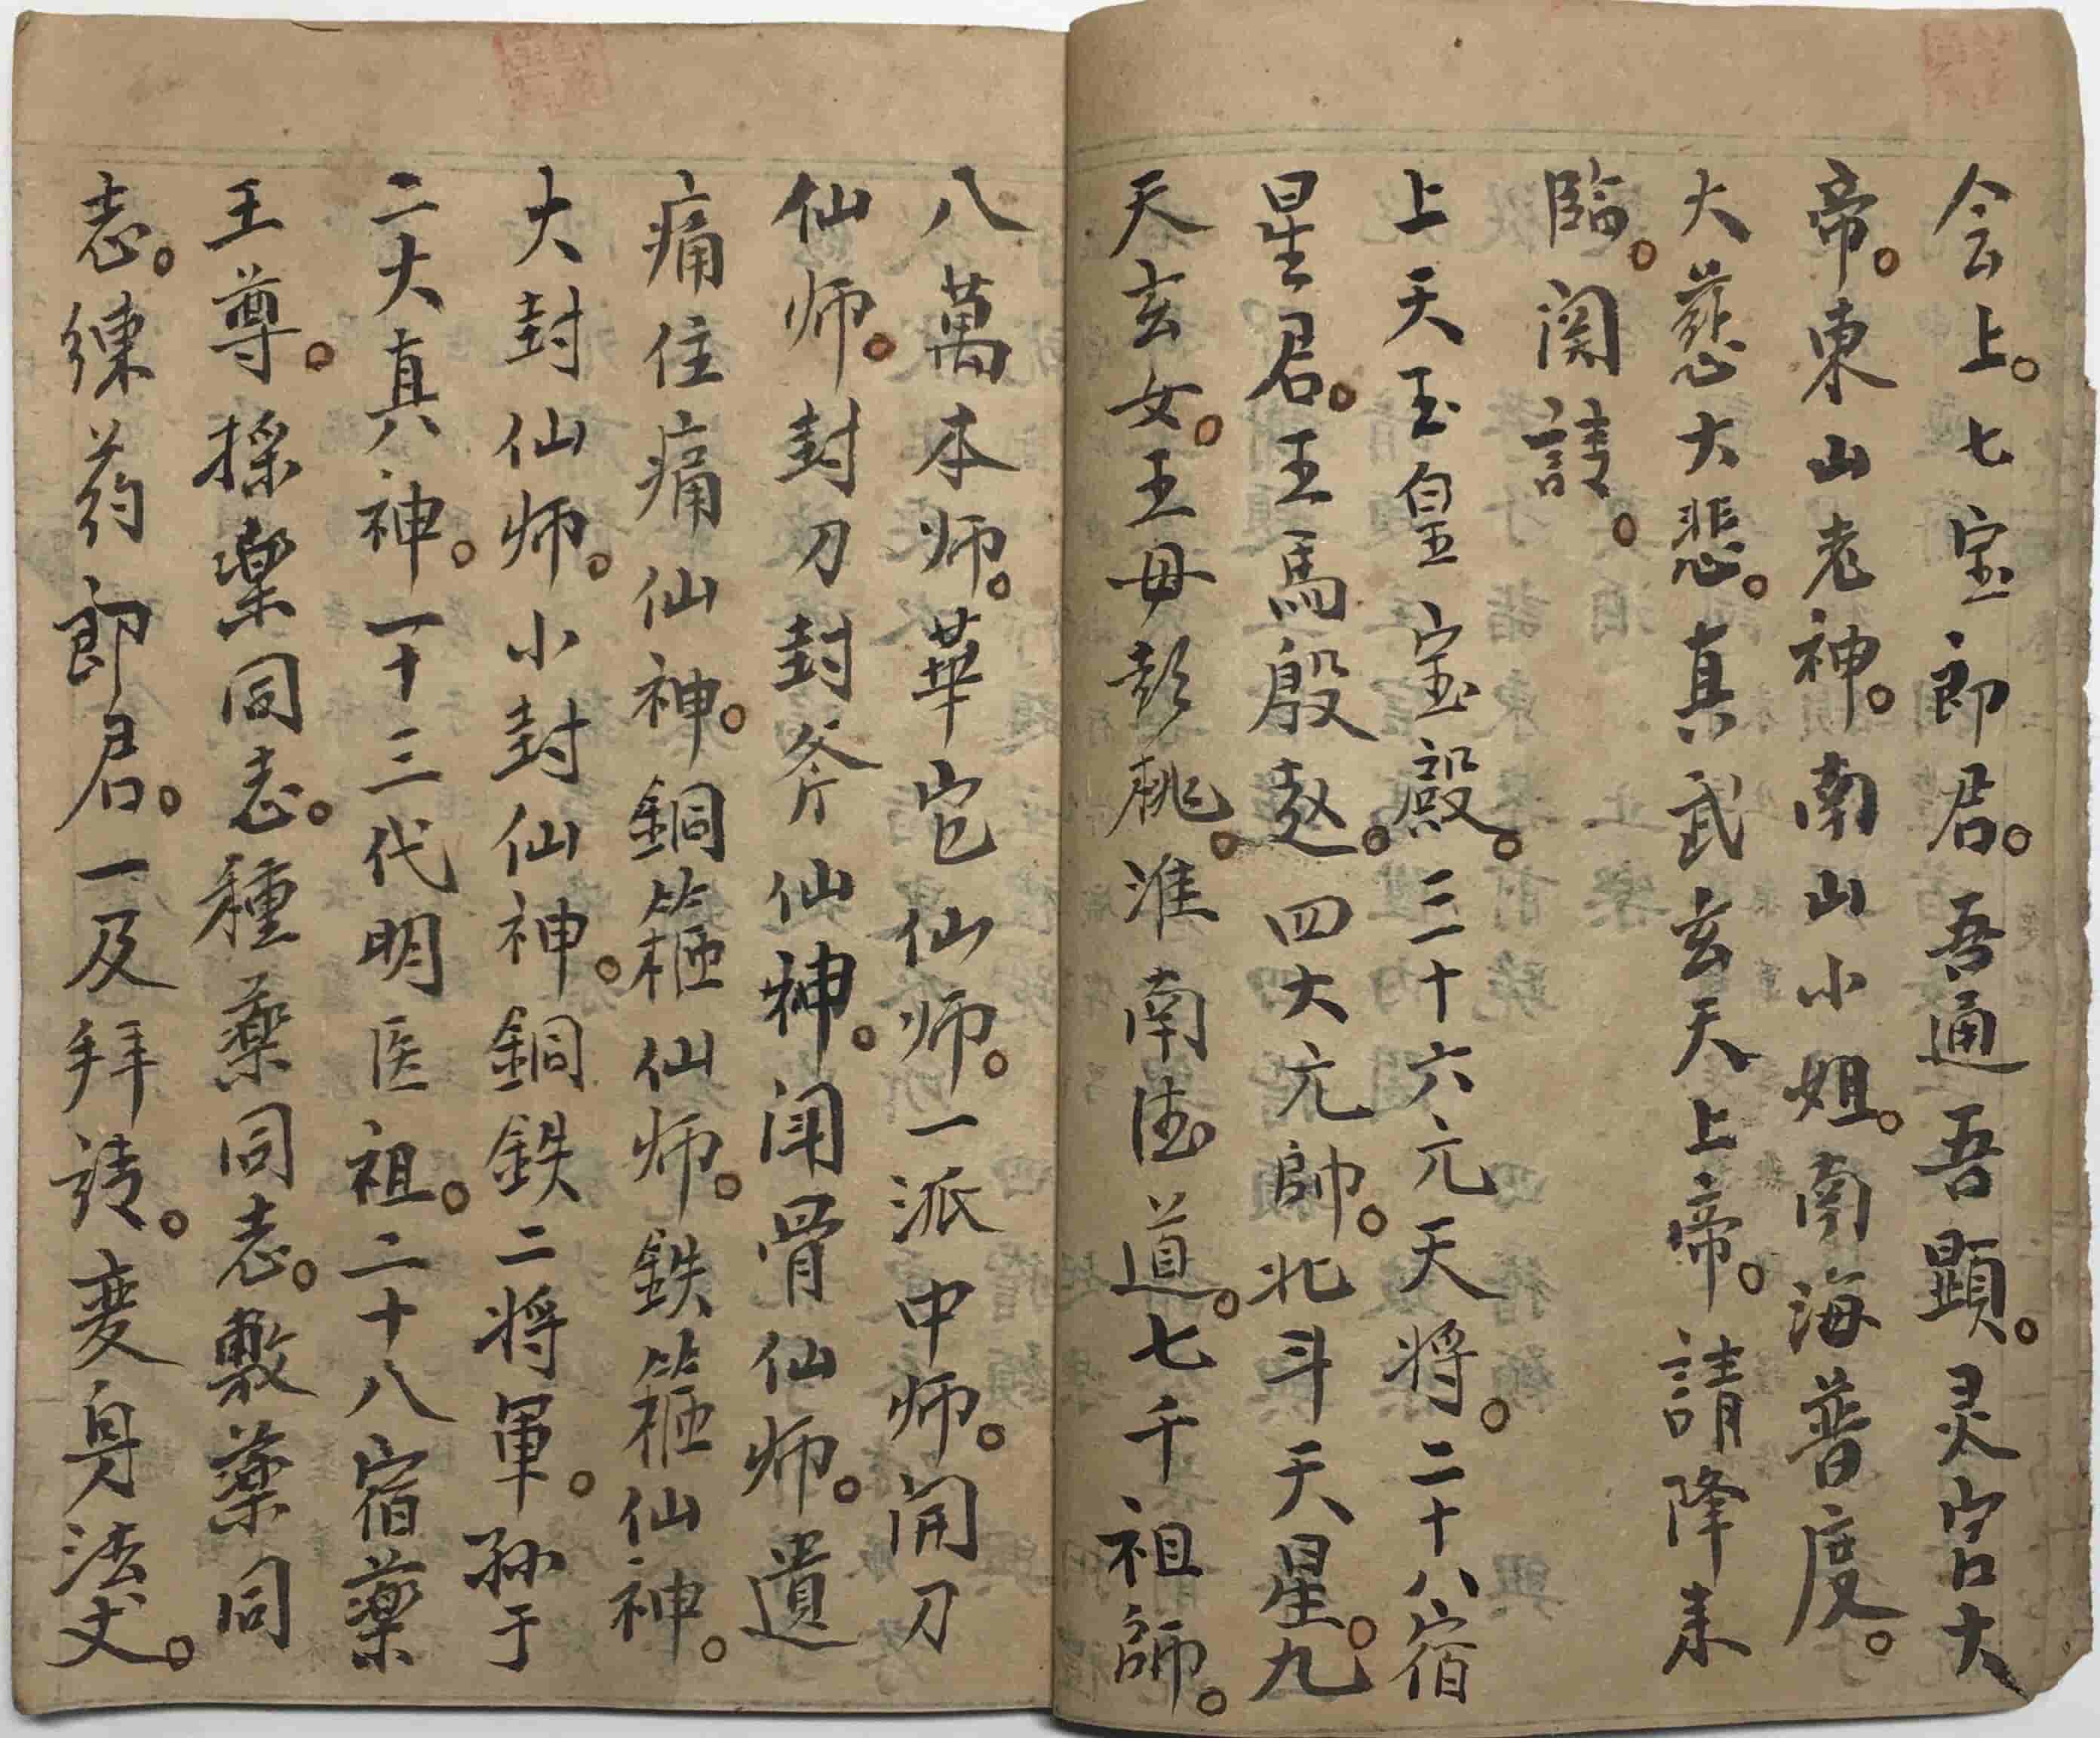 会上。七宝郎君。吾通吾顕。灵官大
帝。東山老神。南山小姐。南海普度。
大慈大悲。真武玄天上帝。請降来
臨。関請。
上天玉皇宝殿。三十六元天将。二十八宿
星君。王馬殷赵。四大元帥。北斗天星。九
天玄女。王母彭桃。淮南法道。七千祖師。
八萬本师。華它仙师。一派中师。開刀
仙师。封刀封斧仙神。闻骨仙师。遺
痛住痛仙神。銅箍仙师。鉄箍仙神。
大封仙师。小封仙神。銅鉄二将軍。孙于
二大真神。一十三代明医祖。二十八宿藥
王尊。採藥同志。種藥同志。敷藥同
志。練药郎君。一及拜请。变身法丈。